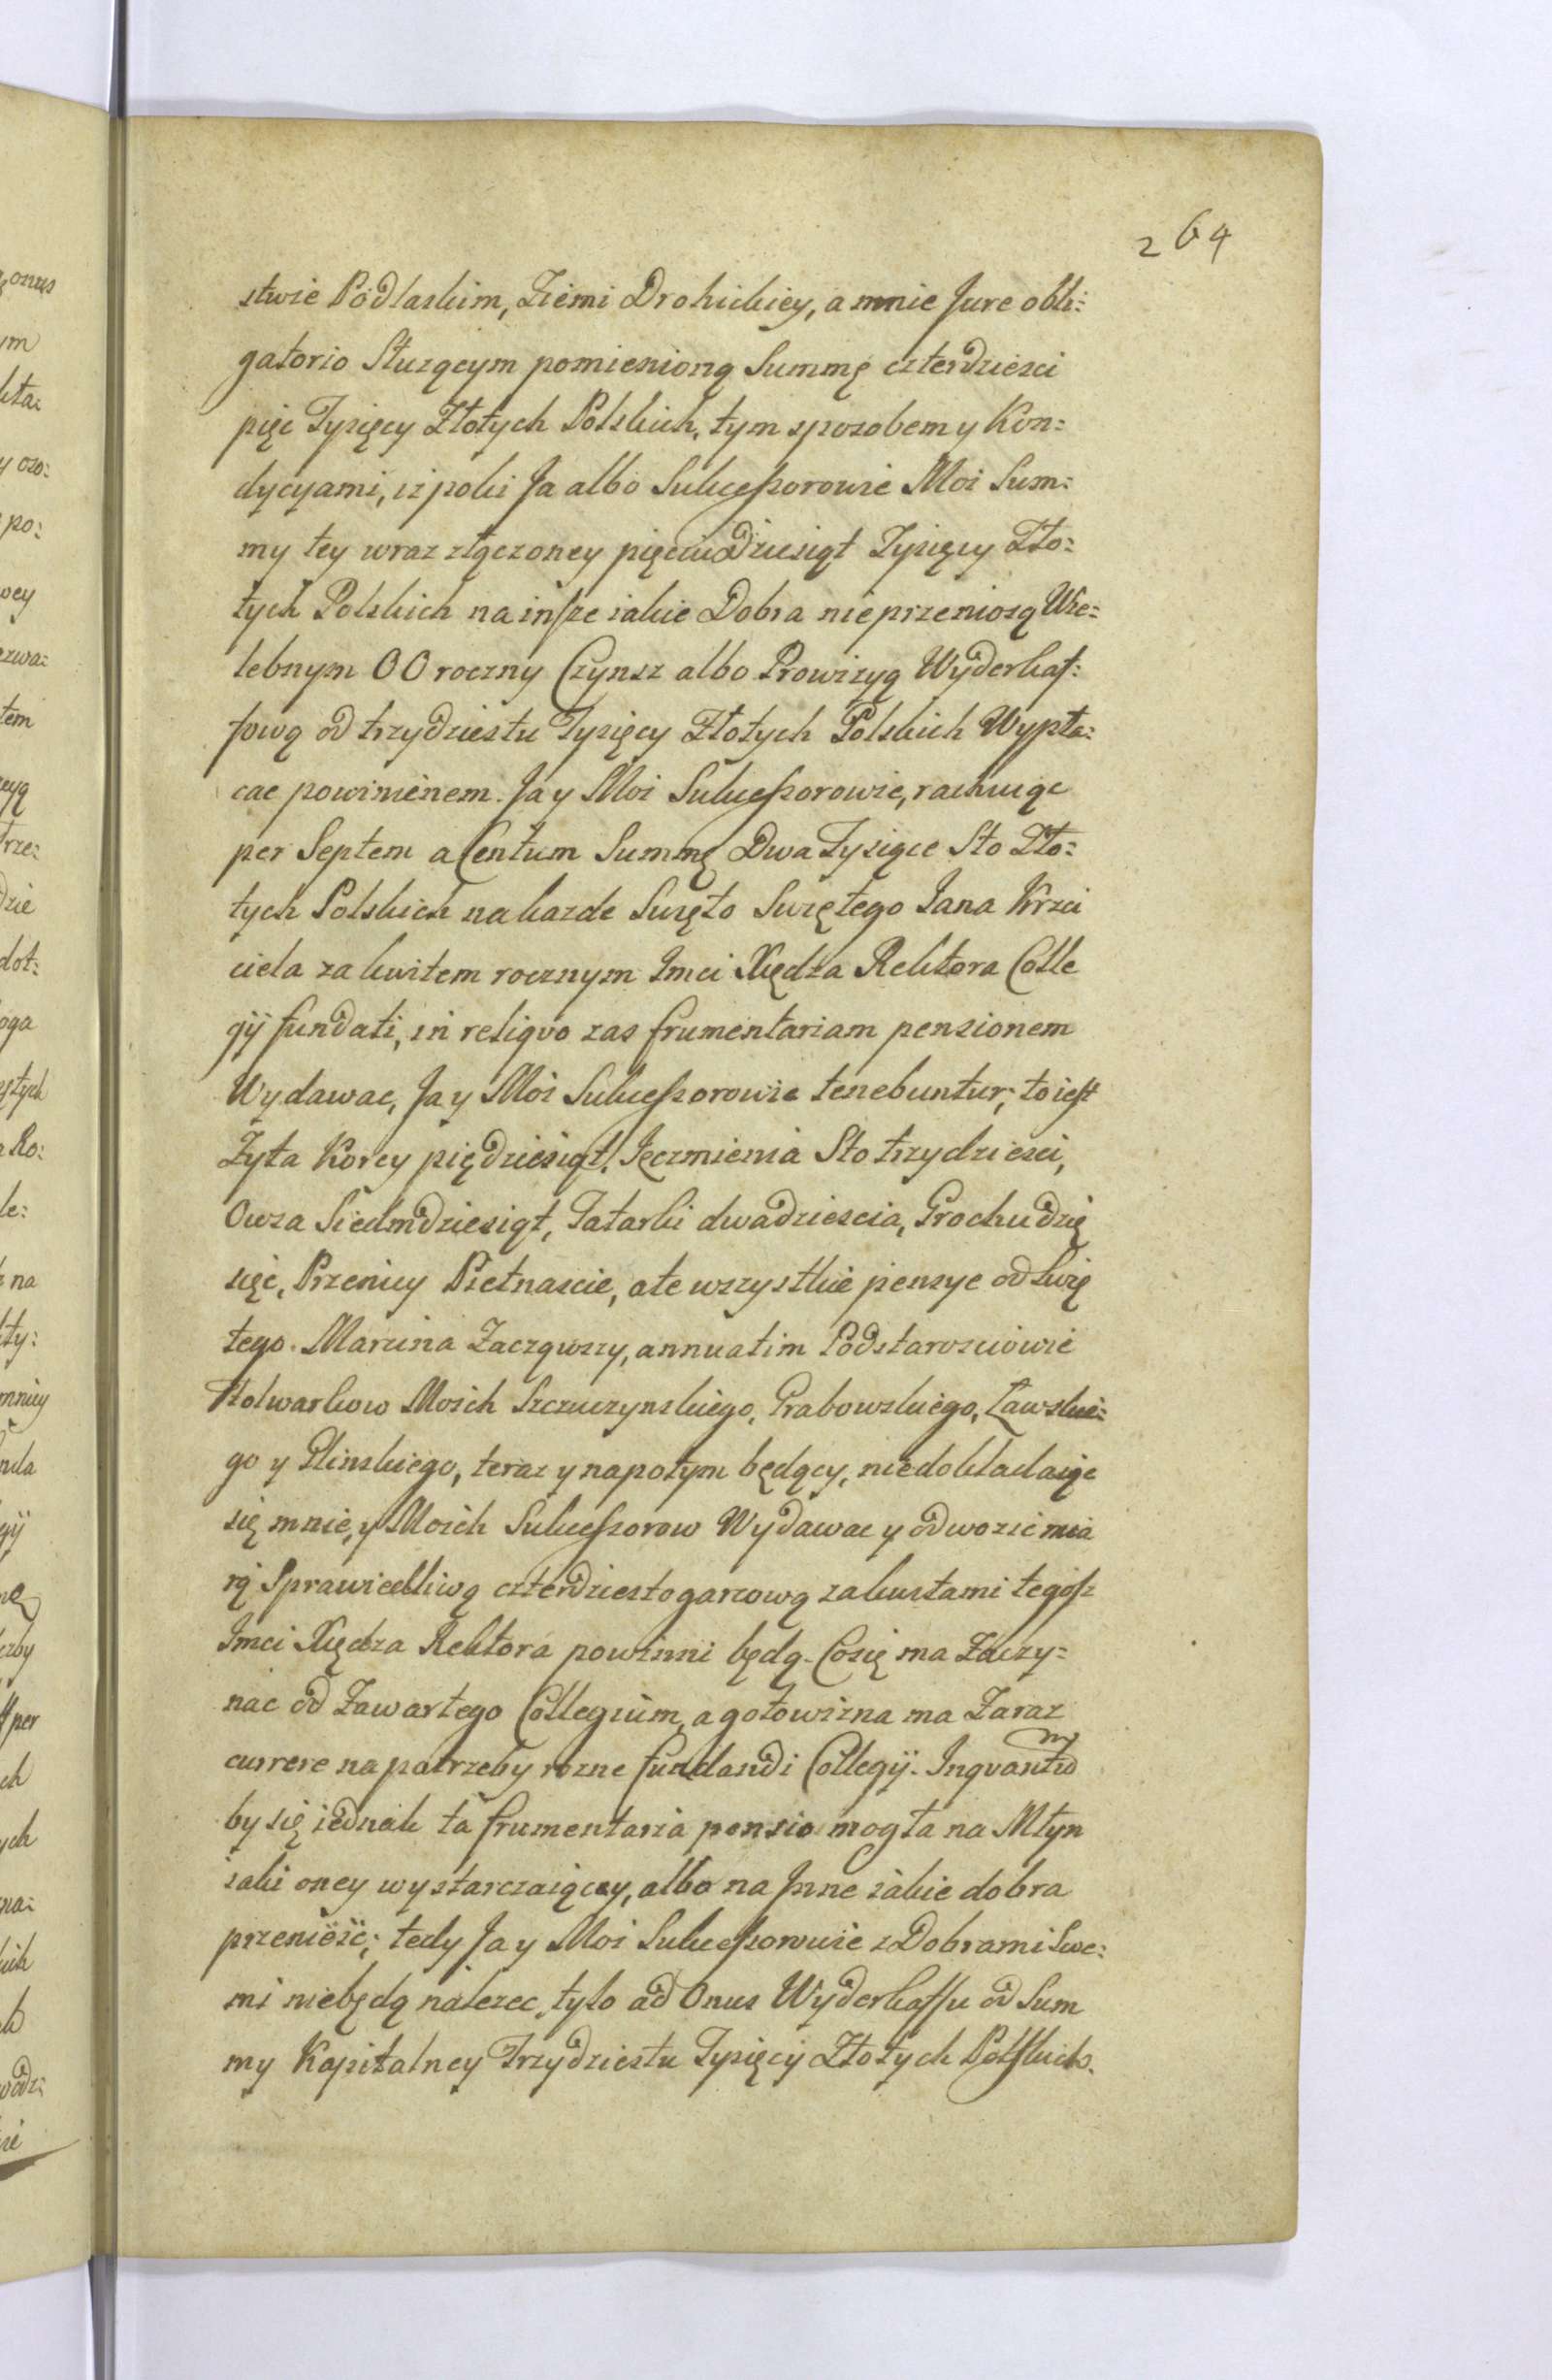 264
stwie Podlaskim, Ziemi Drohickiey, a mnie Jure obli:
gatorio Słuzącym pomienioną Summę czterdziesci
pięc Tysięcy Złotych Polskich, tym sposobem y Kon:
dycyami, iz poki Ja albo Sukceszorowie Moi Sum:
my tey wraz złączoney pięciudziesiąt Tysięcy Zło:
tych Polskich na insze iakie Dobra nieprzeniosą Wie:
lebnym OO roczny Czynsz albo Prowizyą Wyderkaf:
fową od trzydziestu Tysięcy Złotych Polskich Wypła:
cac powinienem. Ja y Moi Sukceszorowie, rachuiąc
per Septem a Centum Summę Dwa Tysiące Sto Zło:
tych Polskich na kazde Swięto Swiętego Jana Krzci
ciela za kwitem rocznym Imci Xiędza Rektora Colle
gij fundati, in reliqvo zas frumentariam pensionem
Wydawac, Ja y Moi Sukceszorowie tenebuntur; to iest
Zyta Korcy piędziesiąt, Jęczmienia Sto trzydziesci,
Owza Siedmdziesiąt, Tatarki dwadziescia, Grochu dzię
sięc, Przenicy Pietnascie, a te wszystkie pensye od Swię
tego Marcina Zacząwszy, annuatim Podstarosciowie
Folwarkow Moich Szczuczynskiego, Grabowskiego, Ławskie:
go y Glinskiego, teraz y napotym będący, niedokładaiąc
się mnie, y Moich Sukceszorow Wydawac y odwozic mia
rą Sprawiedliwą czterdziestogarcową za kwitami tegosz
Imci Xiędza Rektora powinni będą. Cosię ma Zaczy:
nac od Zawartego Collegium, a gotowizna ma Zaraz
currere na potrzeby rozne fundandi Collegij. Inqvantum
by się iednak ta frumentaria pensio mogła na Młyn
iaki oney wystarczaiący, albo na Jnne iakie dobra
przenieść; tedy Ja y Moi Sukceszorowie z Dobrami Swe:
mi niebędą nalezec, tylo ad Onus Wyderkaffu od Sum
my Kapitalney Trzydziestu Tysięcy Złotych Polskich.